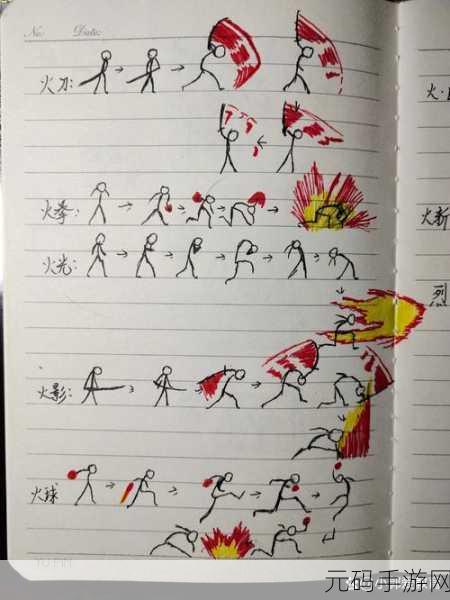 No: Date:
火刀:
火·
火拳:
火斩
火光:
烈
火影:
火球
元码手游网